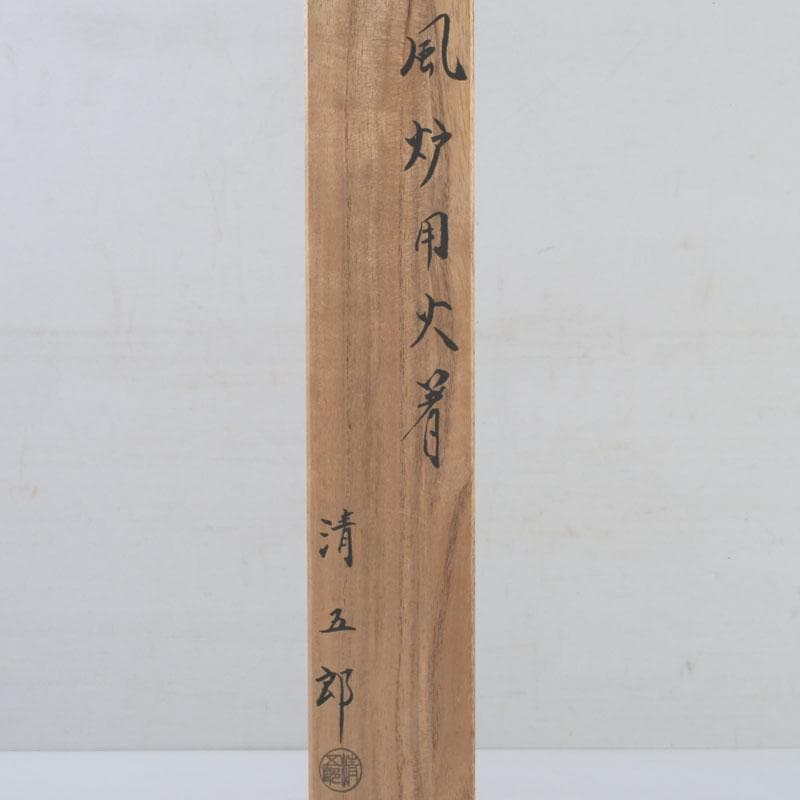 風炉用火箸
清五郎